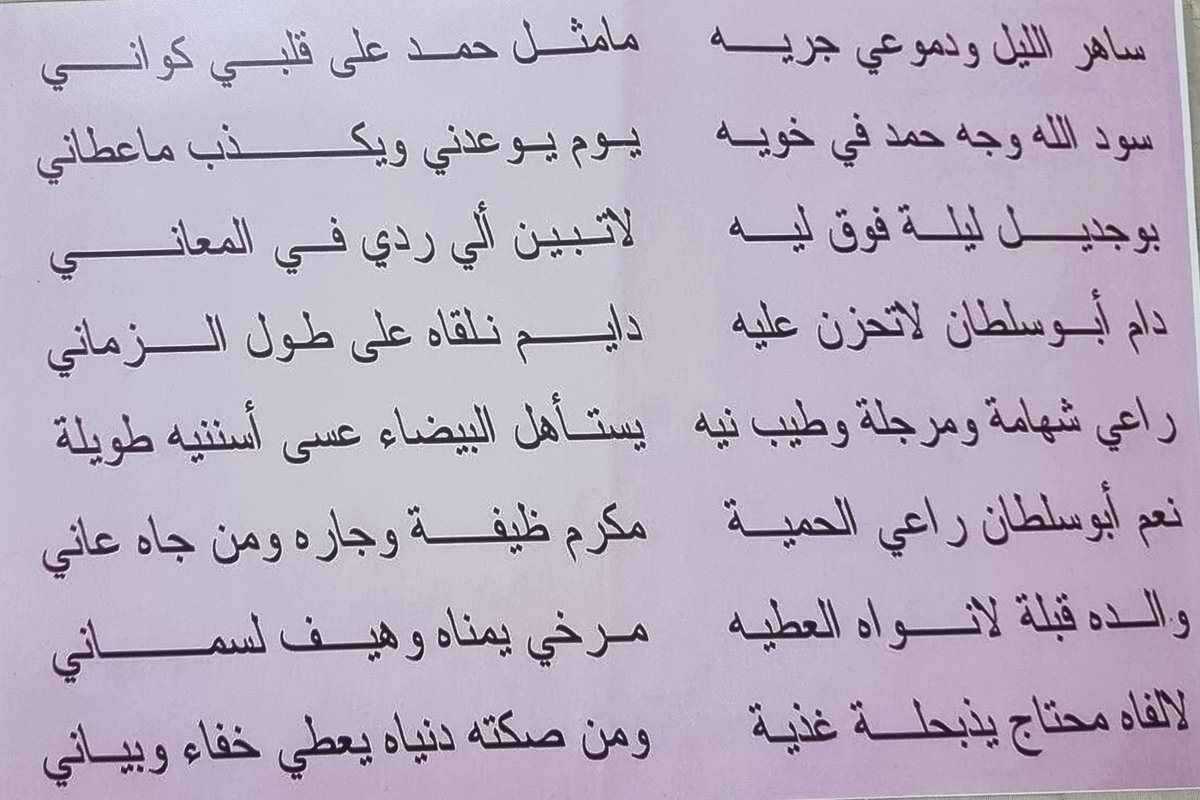 ساهر الليل ودموعي جريه مامثل حمد على قلبي كواني
سود الله وجه حمد في خويه يوم يوعدني ويكذب ماعطاني
بوجديل ليلة فوق ليه لاتبين ألي ردي في المعاني
دام أبوسلطان لاتحزن عليه دايم نلقاه على طول الزماني
راعي شهامة ومرجلة وطيب نيه يستأهل البيضاء عسى أسننيه طويلة
نعم أبوسلطان راعي الحمية مكرم ظيفة وجاره ومن جاه عاني
والده قبلة لانواه العطيه مرخي يمناه وهيف لسماني
لالفاه محتاج يذبحلة غذية ومن صكته دنياه يعطي خفاء وبياني